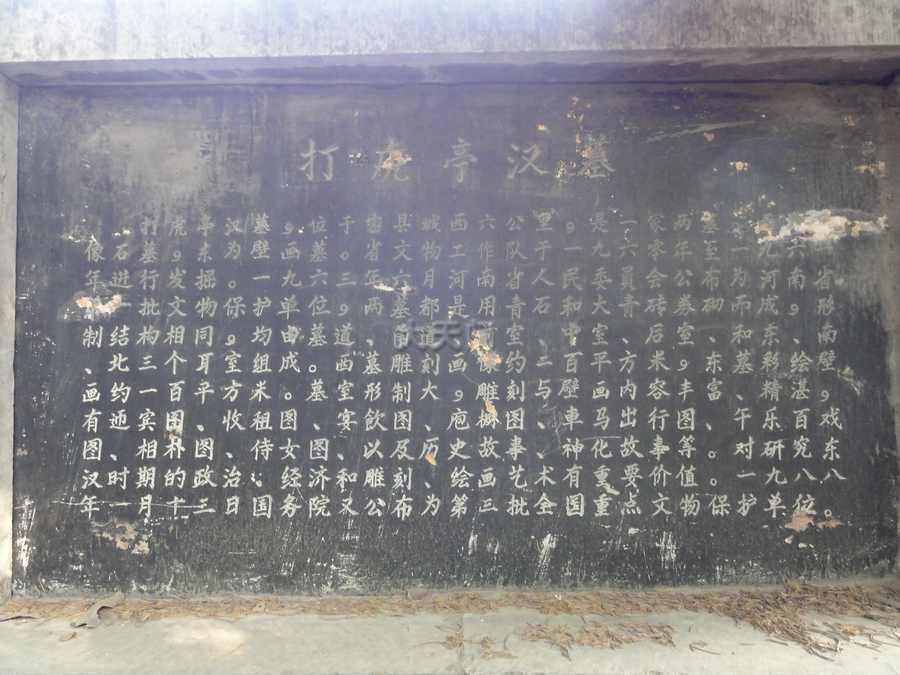 打虎亭汉墓
打虎亭汉墓，位于密县城西六公里，是一家两
像石墓，东为壁画墓。省文物工作队于一九六零年至一九六
年进行发掘。一九六三年六月河南省人民委員会公布为河南省
一批文物保护单位，两墓都是用青石和大青砖券砌而成，形
制结构相同，均由墓道、甬道、室、中室、后室、和东、南
、北三个耳室组成。西墓雕刻画像约二百平方米，东墓彩绘壁
画约一百平方米。墓室形制大，雕刻与壁画内容丰富、精湛，
有迎宾图、收租图、宴飲图、庖厨图、車马出行图、午乐百戏
图、相朴图、待女图、以及历史故事、神化故事等。对研究东
汉时期的政治；经济和雕刻、绘画艺术有重要价值。一九八八
年一月十三日国务院又公布为第三批全国重点文物保护单位。